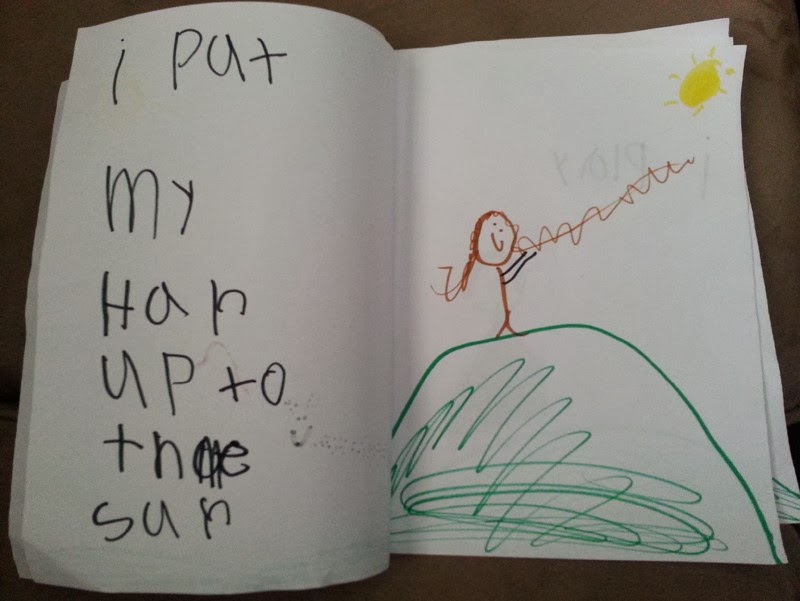 i put
My
Han
up to
the
sun